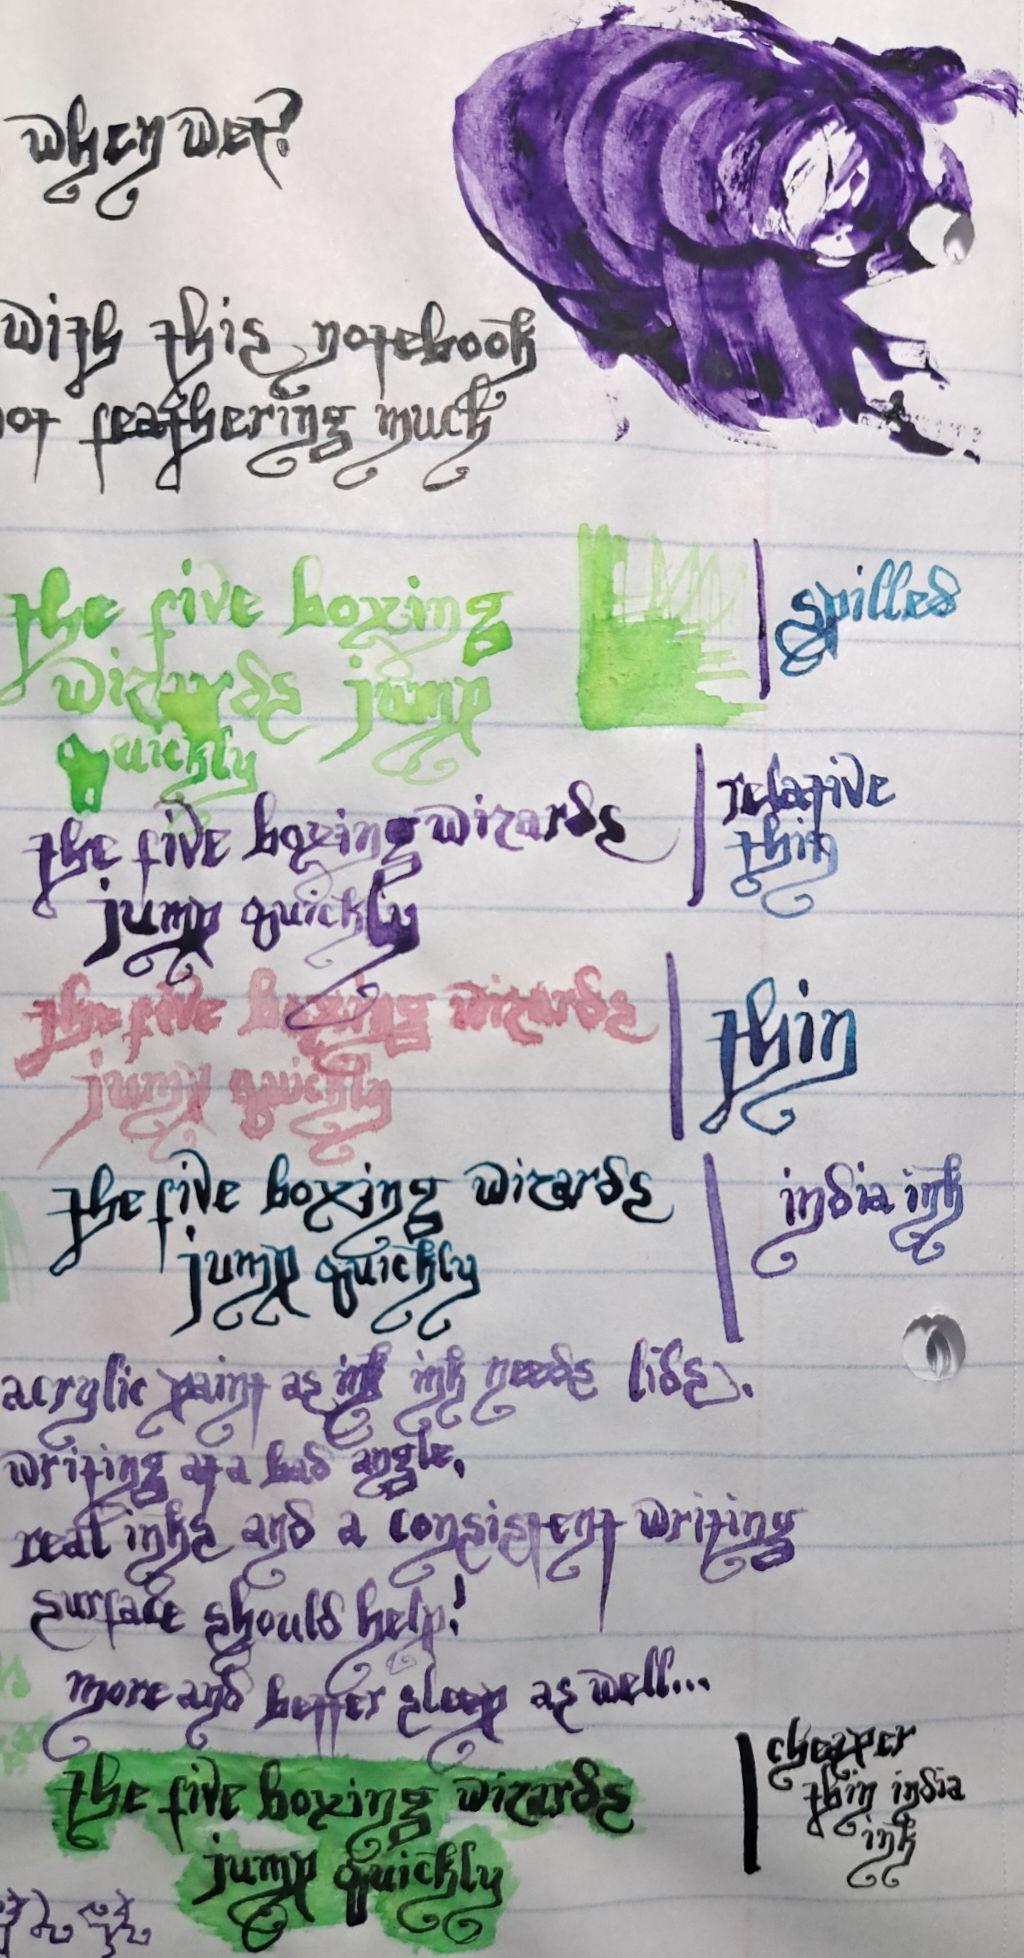 when wet?
with this notebook
not feathering much
the five boxing
wizards jump
quickly
spilled
the five boxing wizards
jump quickly
relative
thin
the five boxing wizards
jump quickly
thin
the five boxing wizards
jump quickly
india ink
acrylic paint as ink ink needs lids.
writing at a bad angle,
real inks and a consistent writing
surface should help!
more and better sleep as well...
the five boxing wizards
jump quickly
cheaper
thin india
ink